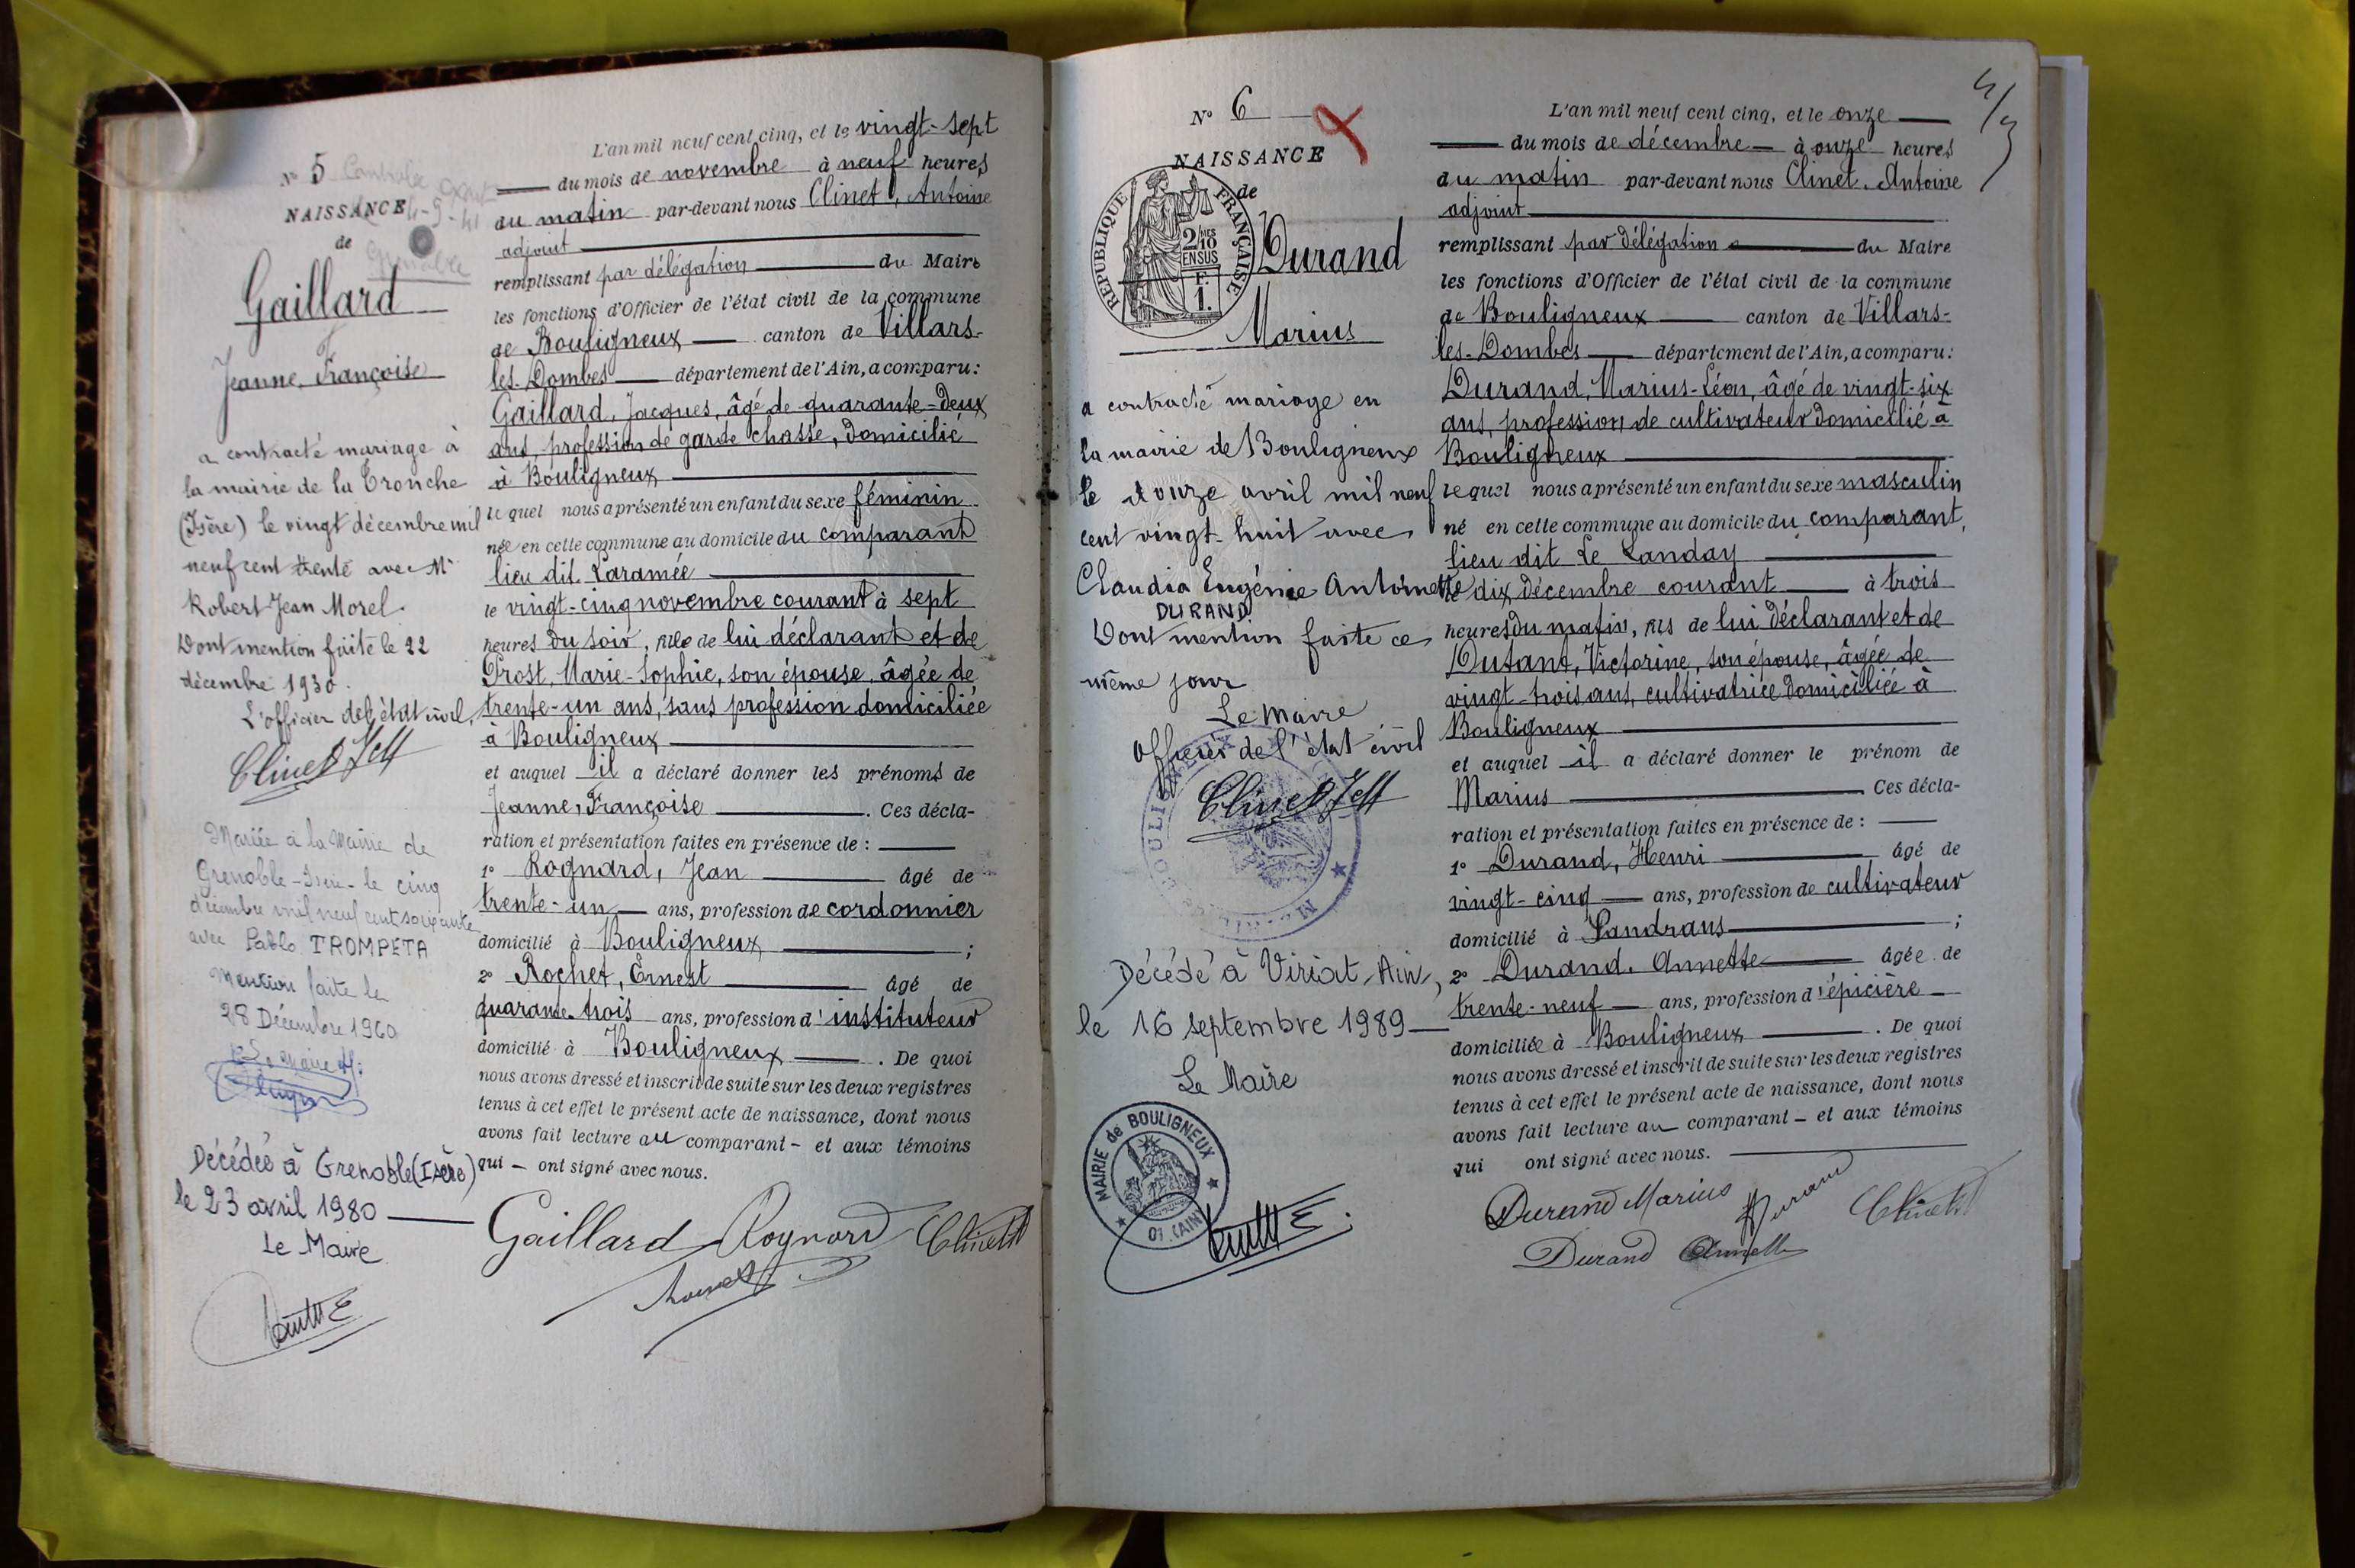 N° 5
NAISSANCE
de
Gaillard
Jeanne, Françoise
a contracté mariage à
la mairie de la Tronche
(Isère) le vingt décembre mil
neuf cent trente avec Mr
Robert Jean Morel.
Dont mention faite le 22
décembre 1930.
L'officier de l'état civil,
Mariée à la Mairie de
Grenoble - Isère - le cinq
décembre mil neuf cent soixante
avec Pablo TROMPETA
Mention faite le
28 Décembre 1960
Décédée à Grenoble (Isère)
le 23 avril 1980
Le Maire
L'an mil neuf cent cinq, et le vingt-sept
du mois de novembre à neuf heures
du matin par-devant nous Clinet, Antoine
adjoint
remplissant par délégation du Maire
les fonctions d'Officier de l'état civil de la commune
de Bouligneux canton de Villars-
les-Dombes département de l'Ain, a comparu :
Gaillard, Jacques, âgé de quarante-deux
ans, profession de garde chasse, domicilié
à Bouligneux
lequel nous a présenté un enfant du sexe féminin
née en cette commune au domicile du comparant
lieu dit Laramée
le vingt-cinq novembre courant à sept
heures du soir, fille de lui déclarant et de
Prost, Marie-Sophie, son épouse, âgée de
trente-un ans, sans profession domiciliée
à Bouligneux
et auquel il a déclaré donner les prénoms de
Jeanne, Françoise . Ces décla-
ration et présentation faites en présence de :
1° Rognard, Jean âgé de
trente-un ans, profession de cordonnier
domicilié à Bouligneux ;
2° Rochet, Ernest âgé de
quarante-trois ans, profession d'instituteur
domicilié à Bouligneux . De quoi
nous avons dressé et inscrit de suite sur les deux registres
tenus à cet effet le présent acte de naissance, dont nous
avons fait lecture au comparant - et aux témoins
qui - ont signé avec nous.
Gaillard Rognard Clinet
N° 6
NAISSANCE
de
RÉPUBLIQUE FRANÇAISE
2/10 MES
EN SUS
F.
1.
Durand
Marius
a contracté mariage en
la mairie de Bouligneux
le douze avril mil neuf
cent vingt-huit avec
Claudia Eugénie Antoinette
DURAND
Dont mention faite ce
même jour
Le Maire
Officier de l'état civil
Décédé à Viriat, Ain,
le 16 septembre 1989
Le Maire
MAIRIE de BOULIGNEUX
01 (AIN)
L'an mil neuf cent cinq, et le onze
du mois de décembre à onze heures
du matin par-devant nous Clinet, Antoine
adjoint
remplissant par délégation du Maire
les fonctions d'Officier de l'état civil de la commune
de Bouligneux canton de Villars-
les-Dombes département de l'Ain, a comparu :
Durand, Marius-Léon, âgé de vingt-six
ans, profession de cultivateur domicilié à
Bouligneux
lequel nous a présenté un enfant du sexe masculin
né en cette commune au domicile du comparant,
lieu dit Le Landay
le dix décembre courant à trois
heures du matin, fils de lui déclarant et de
Dutant, Victorine, son épouse, âgée de
vingt-trois ans, cultivatrice domiciliée à
Bouligneux
et auquel il a déclaré donner le prénom de
Marius Ces décla-
ration et présentation faites en présence de :
1° Durand, Henri âgé de
vingt-cinq ans, profession de cultivateur
domicilié à Sandrans ;
2° Durand, Annette âgée de
trente-neuf ans, profession d'épicière
domiciliée à Bouligneux . De quoi
nous avons dressé et inscrit de suite sur les deux registres
tenus à cet effet le présent acte de naissance, dont nous
avons fait lecture au comparant - et aux témoins
qui ont signé avec nous.
Durand Marius Durand Clinet
Durand Annette